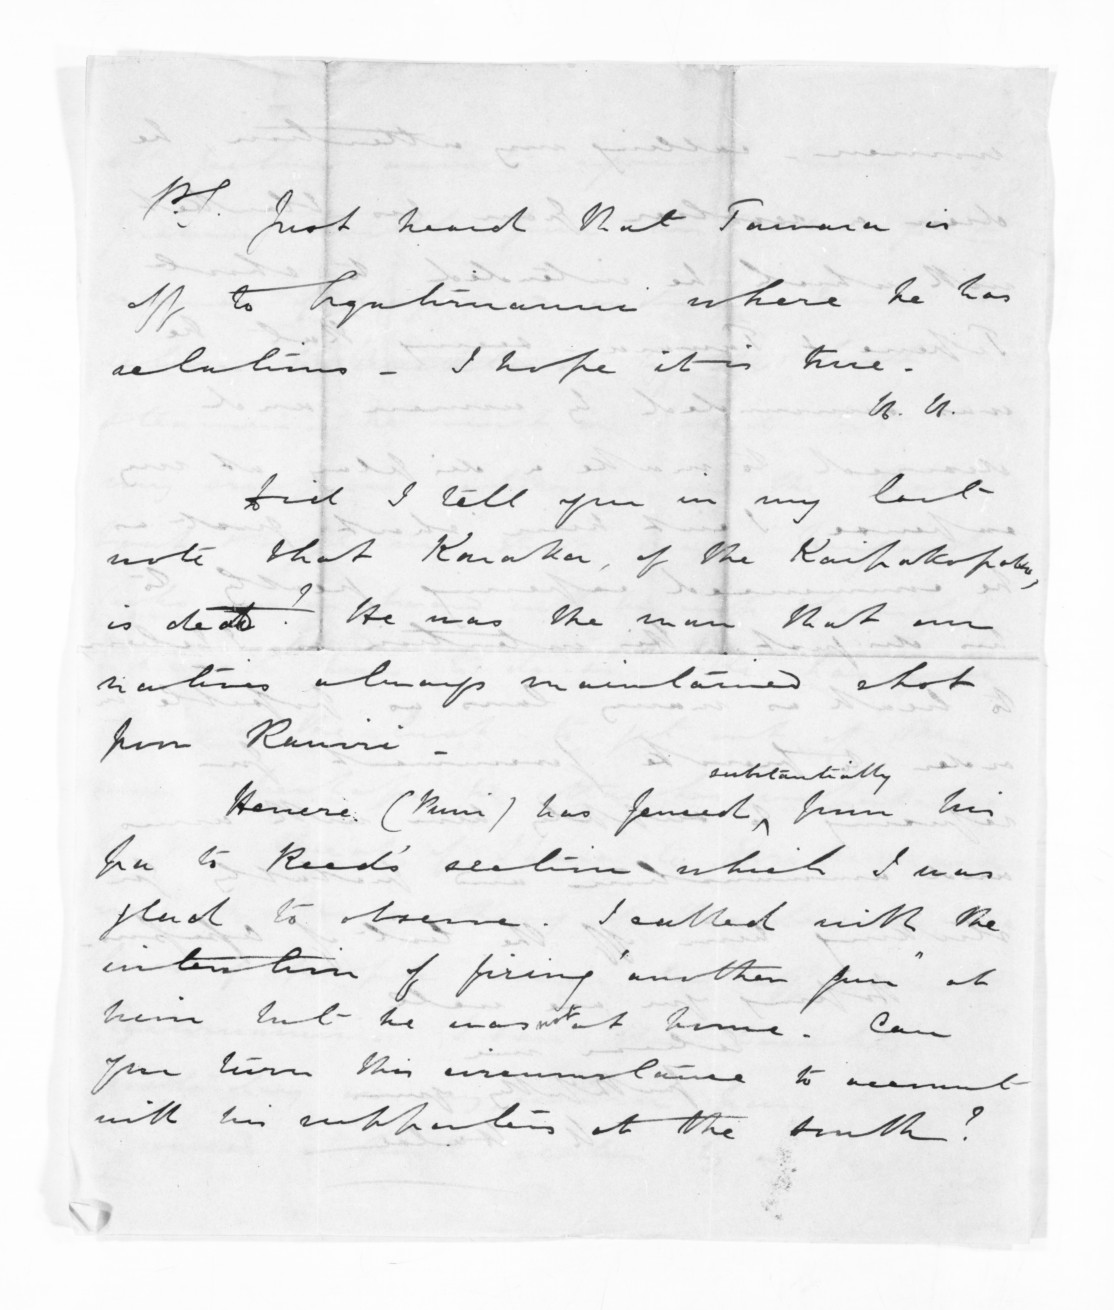 P.S. Just heard that Tawara is
off to Ngatimaunu where he has
relations - I hope it is true.
H. H.
Did I tell you in my last
note that Karaka, of the Kaipakopako,
is dead? He was the man that our
natives always maintained shot
poor Rawiri -
substantially
Henere (Puni) has fenced, from his
pa to Read's section which I was
glad to observe. I called with the
intention of firing "another gun" at
him but he was not at home. Can
you turn this circumstance to account
with his supporters at the south?